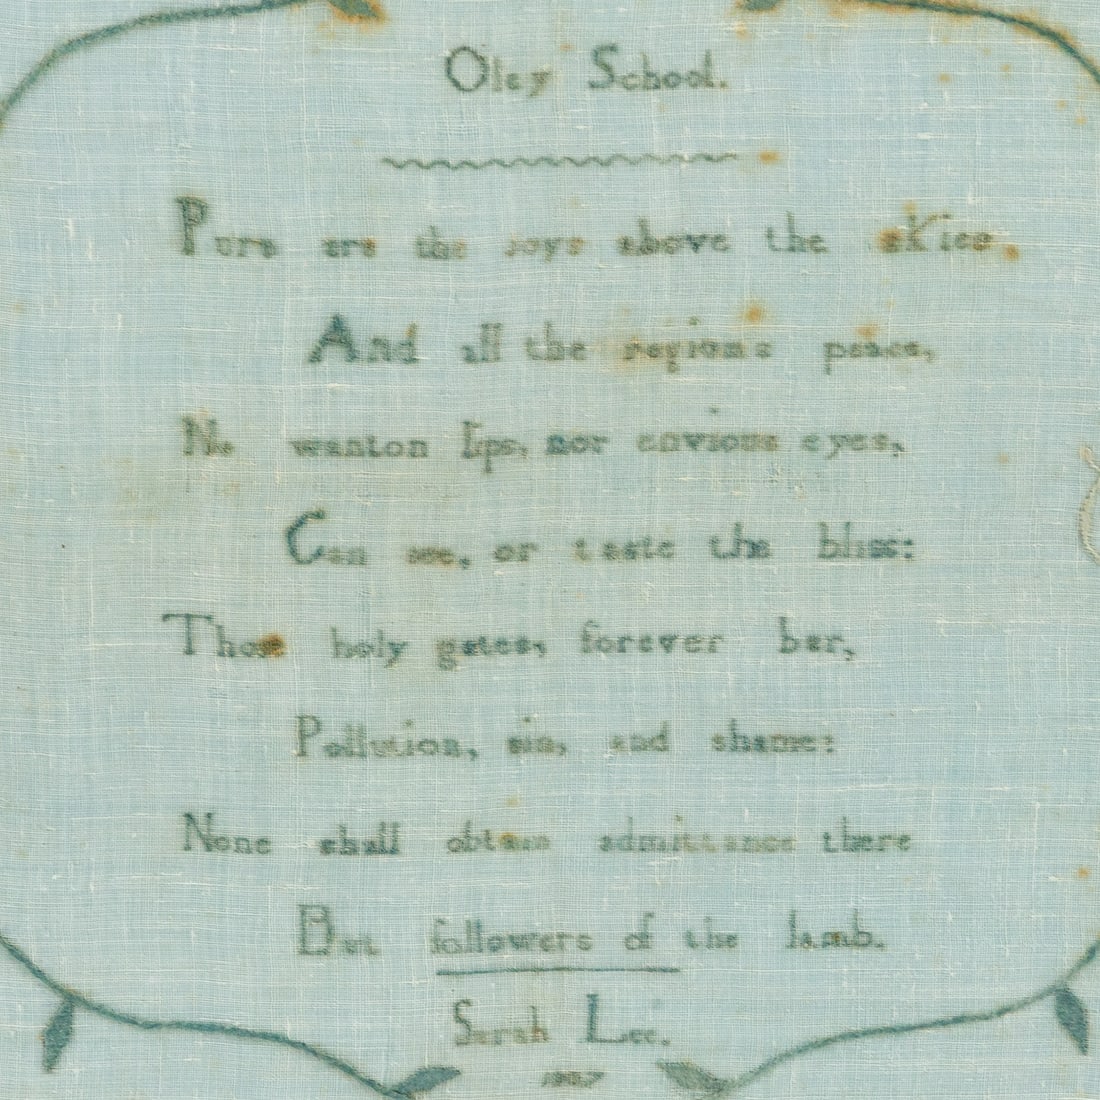 Oley School.
Pure are the joys above the skies,
And all the regions peace,
No wanton lips, nor envious eyes,
Can see, or taste the bliss:
Those holy gates, forever bar,
Pollution, sin, and shame:
None shall obtain admittance there
But followers of the lamb.
Sarah Lee.